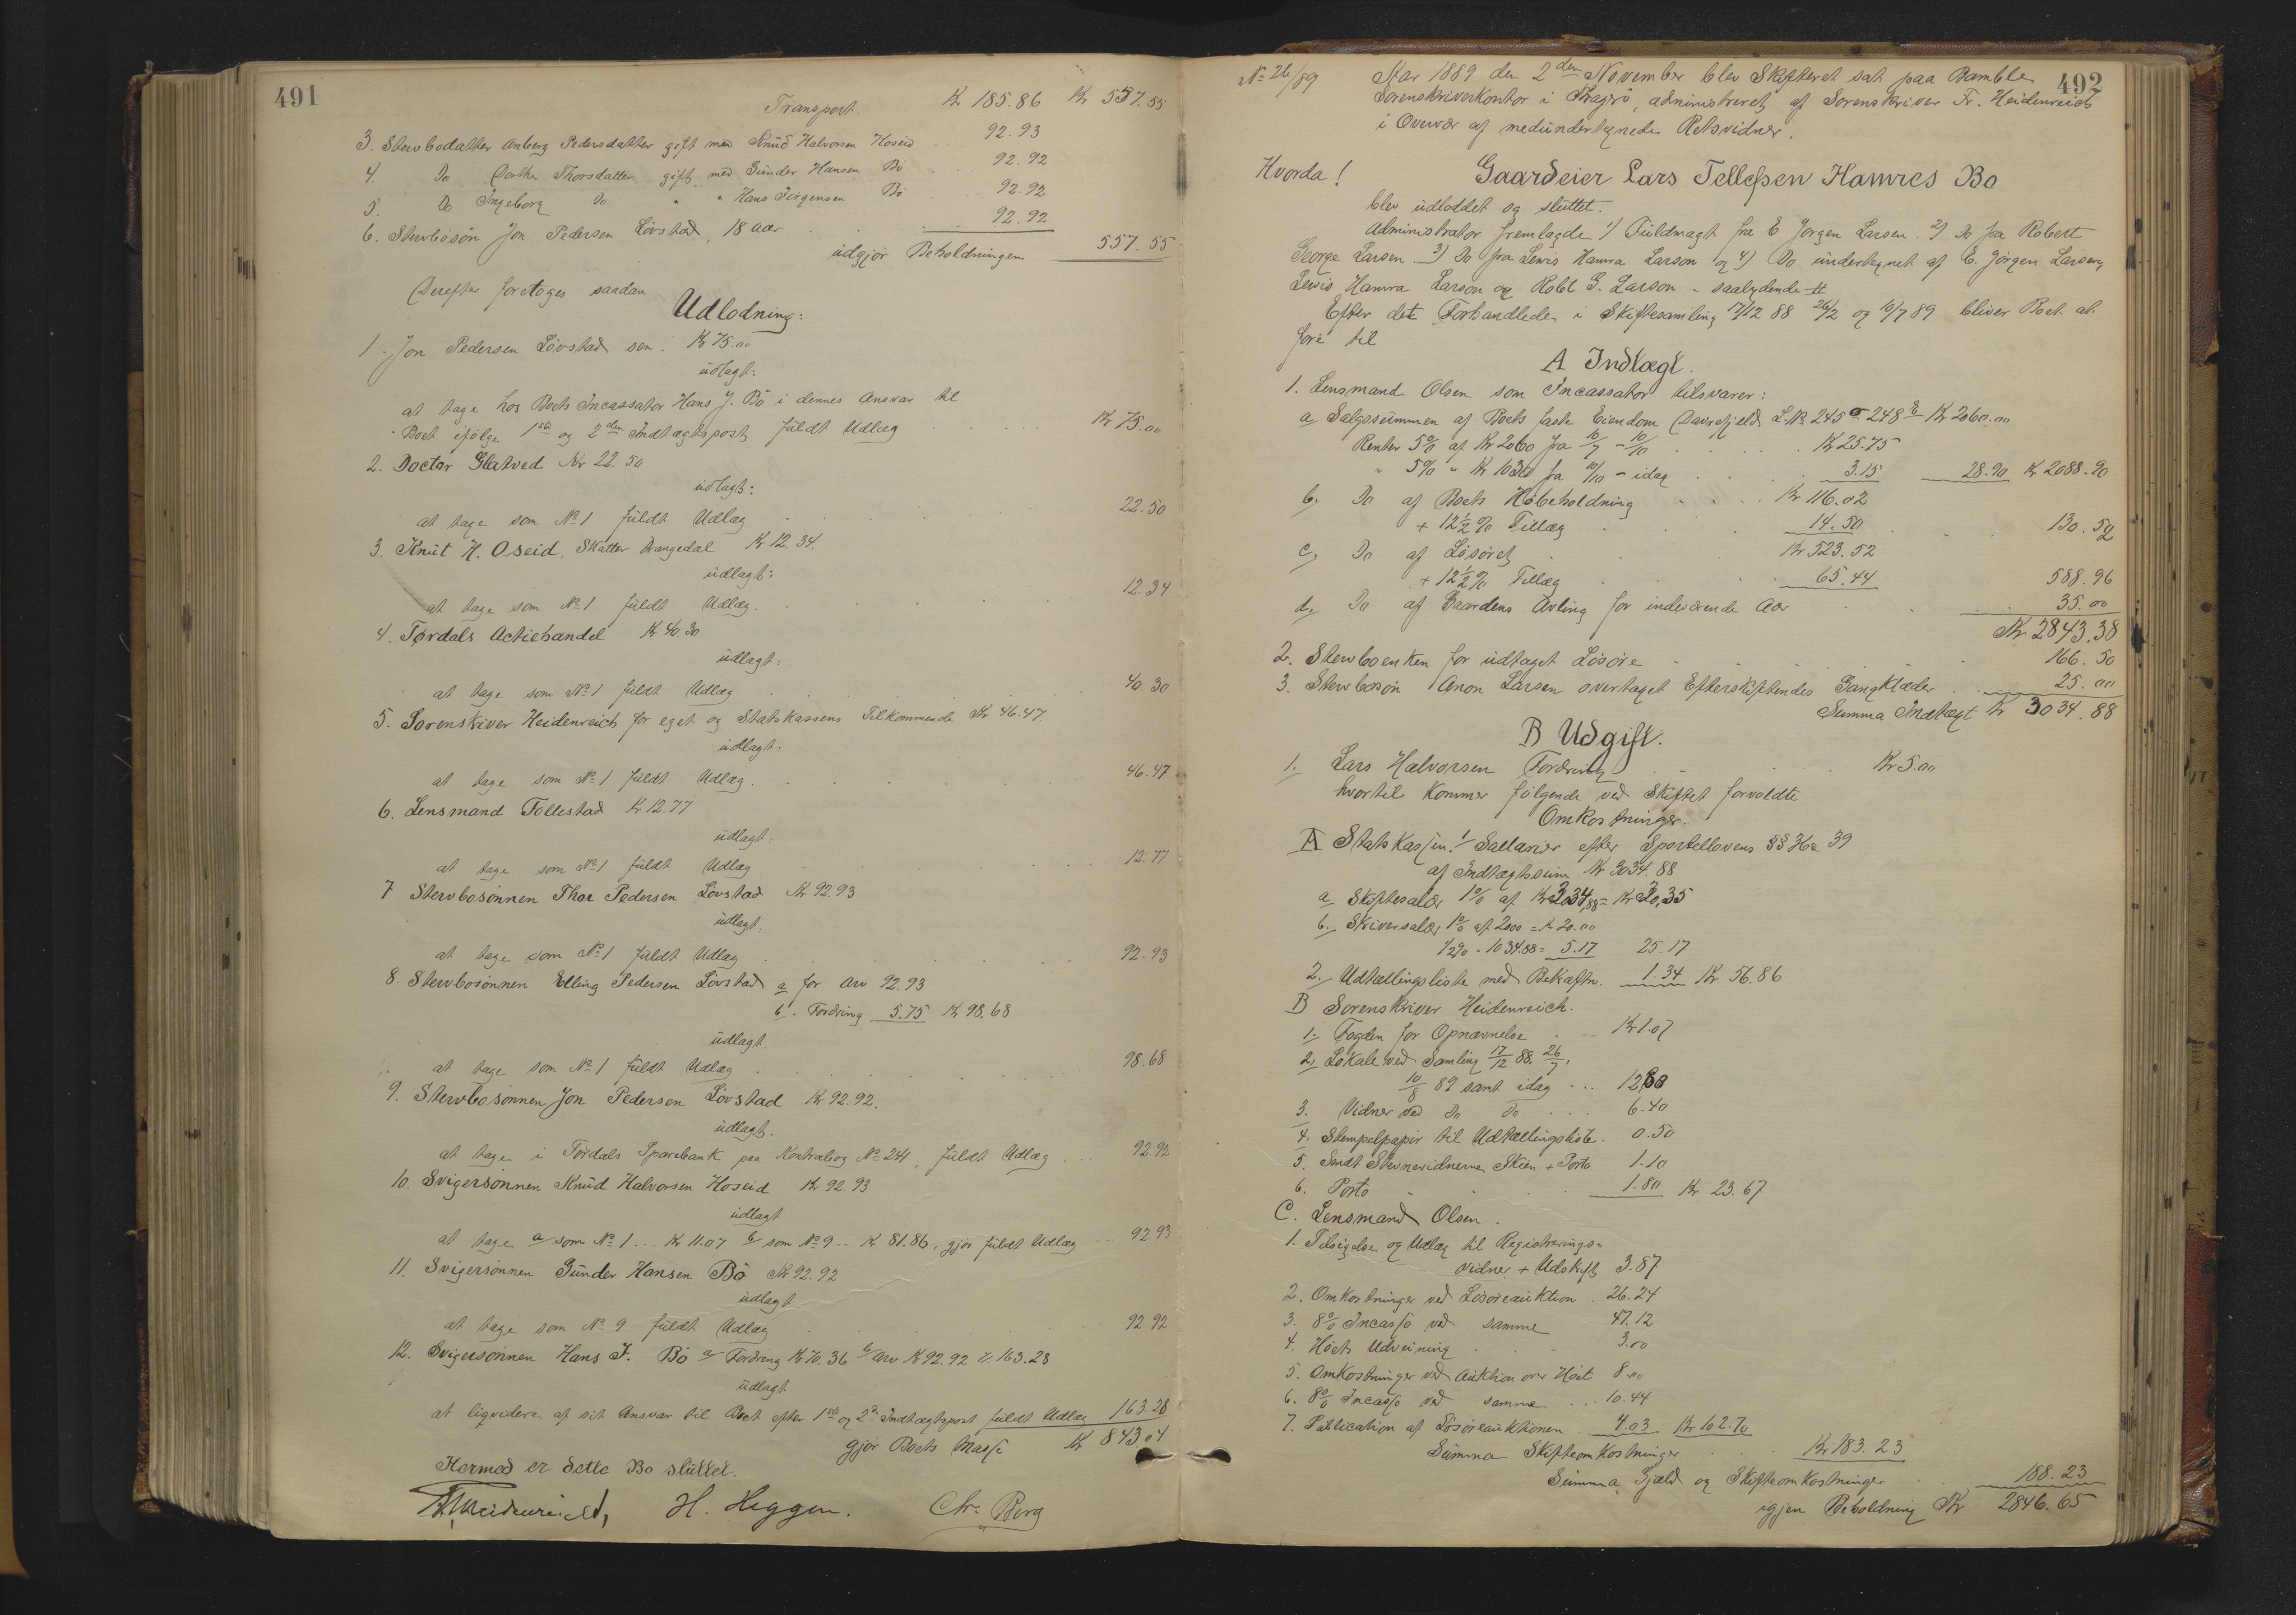 491
Transport. Kr 185.86 Kr 557.55
3. Stervbodatter Anberg Pedersdatter gift med Knud Halvorsen Hoseid . . 92.93
4. Do Dorthe Thorsdatter gift med Gunder Hansen Bö . . 92.92
5. Do Ingeborg Do " " Hans Jörgensen Bö . 92.92
6. Stervbosön Jon Pedersen Lövstad, 18 aar . . . 92.92
udgjör Beholdningen 557.55
Derefter foretoges saadan
Udlodning:
1. Jon Pedersen Lövstad sen. Kr 75.00
udlagt:
at tage hos Boets Incassator Hans J. Bö i dennes Ansvar til
Boet ifölge 1ste og 2den Indtægtspost, fuldt Udlæg . . . . Kr 75.00
2. Doctor Glatved Kr 22.50
udlagt:
at tage som No 1 fuldt Udlæg . . . . 22.50
3. Knut H. Oseid, Skatter Drangedal Kr 12.34.
udlagt:
at tage som No 1 fuldt Udlæg . . . . 12.34
4. Tørdals Actiehandel Kr 40.30
udlagt:
at tage som No 1 fuldt Udlæg . . . . 40.30
5. Sorenskriver Heidenreich for eget og Statskassens Tilkommende Kr 46.47.
udlagt:
at tage som No 1 fuldt Udlæg . . . . 46.47
6. Lensmand Tollestad Kr 12.77
udlagt:
at tage som No 1 fuldt Udlæg . . . . 12.77
7 Stervbosönnen Thor Pedersen Lövstad Kr 92.93
udlagt.
at tage som No 1 fuldt Udlæg . . . . 92.93
8. Stervbosönnen Elling Pedersen Lövstad a for Arv 92.93
b. Fordring 5.75 Kr 98.68
udlagt.
at tage som No 1 fuldt Udlæg . . . . 98.68
9. Stervbosönnen Jon Pedersen Lövstad Kr 92.92.
udlagt.
at tage i Tördals Sparebank paa Kontrabog No 241, fuldt Udlæg . . . 92.92
10. Svigersönnen Knud Halvorsen Hoseid Kr 92.93
udlagt
at tage a som No 1 . . . Kr 11.07 b som No 9 . . Kr 81.86, gjör fuldt Udlæg . . . 92.93
11. Svigersönnen Gunder Hansen Bö Kr 92.92
udlagt
at tage som No 9 fuldt Udlæg . . . . 92.92
12. Svigersönnen Hans J. Bö a Fordring Kr 70.36 b Arv Kr 92.92 Kr 163.28
udlagt
at liqvidere af sit Ansvar til Boet efter 1ste og 2d. Indtægtspost fuldt Udlæg 163.28
gjör Boets Masse Kr 843.04
Hermed er dette Bo sluttet.
Fr Heidenreich, H. Heggen. Chr. Berg
492
No 26/89 Aar 1889 den 2den November blev Skifteret sat paa Bamble
Sorenskriverkontor i Kragerö, administreret af Sorenskriver Fr. Heidenreich
i Overvær af medundertegnede Retsvidner.
Hvorda! Gaardeier Lars Tellefsen Hamres Bo
blev udloddet og sluttet.
Administrator fremlagde 1) Fuldmagt fra E Jörgen Larsen. 2) Do fra Robert
George Larsen. 3) Do fra Lewis Hamra Larson og 4) Do undertegnet af E. Jörgen Larsen,
Lewis Hamra Larson og Robt G. Larson - saalydende #
Efter det Forhandlede i Skiftesamling 17/12 88 26/2 og 10/7 89 bliver Boet at
före til
A Indtægt.
1. Lensmand Olsen som Incassator tilsvarer:
a Salgssummen af Boets faste Eiendom Davrefjeld L.No 245a 248b Kr 2060.00
Renter 5% af Kr 2060 fra 10/7 - 10/10 . . . Kr 25.75
" 5% " Kr 1030 fra 10/10 - idag . . . 3.15 28.90 Kr 2088.90
b. Do af Boets Höbeholdning . . . . Kr 116.02
+ 12½% Tillæg . . . 14.50 . 130.52
c, Do af Lösöret . . . Kr 523.52
+ 12½% Tillæg . . . 65.44 588.96
d, Do af Gaardens Avling for indeværende Aar . . . 35.00
Kr 2843.38
2. Stervboenken for udtaget Lösöre . . . . 166.50
3. Stervbosön Anon Larsen overtaget Efterskiftendes Gangklæder . . 25.00
Summa Indtægt Kr 3034.88
B Udgift.
1. Lars Halvorsen Fordring . . . Kr 5.00
hvortil kommer fölgende ved Skiftet forvoldte
Omkostninger.
A Statskassen. 1/ Sallarier efter Sportellovens §§ 36 a 39
af Indtægtssum Kr 3034.88
a Skiftesalær 1% af Kr 3034,88 = Kr 30,35
b. Skriversalær 1% af 2000 = Kr 20.00
1/2% - 1034.88 = 5.17 25.17
2. Udtællingsliste med Bekræftn. 1.34 Kr 56.86
B Sorenskriver Heidenreich.
1. Fogden for Opnævnelse . . Kr 1.07
2, Lokale ved Samling 17/12 88. 26/7,
10/8 89 samt idag . . . 12,80
3. Vidner ved Do Do . . . 6.40
4. Stempelpapir til Udtællingsliste. 0.50
5. Sendt Stevnevidnerne Skien + Porto 1.10
6. Porto . . . 1.80 Kr 23.67
C. Lensmand Olsen.
1. Tilsigelse og Udlæg til Registrerings-
vidner + Udskrift 3.87
2. Omkostninger ved Lösöreauktion . 26.24
3. 8% Incasso ved samme 47.12
4. Höets Udveining . . 3.00
5. Omkostninger ved Auktion over Höit 8.00
6. 8% Incasso ved samme . . . 10.44
7. Publication af Lösöreauktionen 4.03 Kr 102.70
Summa Skifteomkostninger . . Kr 183.23
Summa Gjæld og Skifteomkostninger . 188.23
igjen Beholdning Kr 2846.65